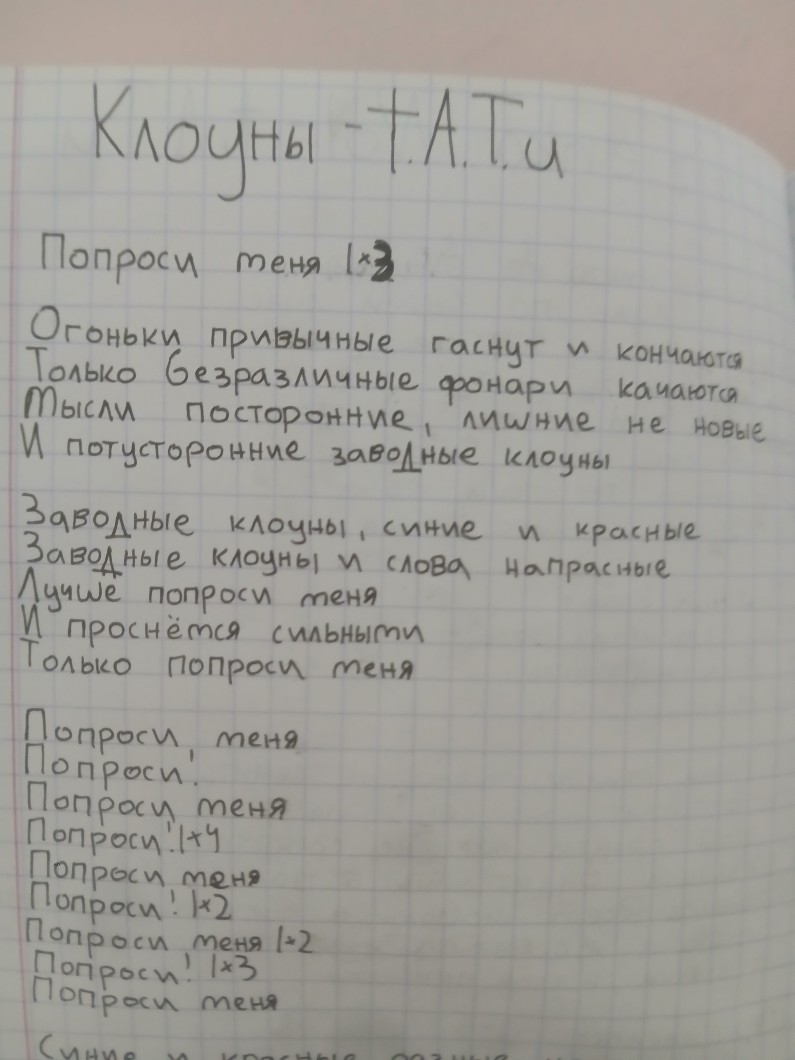 Клоуны - t.A.T.u
Попроси меня |×3
Огоньки привычные гаснут и кончаются
Только безразличные фонари качаются
Мысли посторонние, лишние не новые
И потусторонние заводные клоуны
Заводные клоуны, синие и красные
Заводные клоуны и слова напрасные
Лучше попроси меня
И проснёмся сильными
Только попроси меня
Попроси меня
Попроси!
Попроси меня
Попроси! |×4
Попроси меня
Попроси! |×2
Попроси меня |×2
Попроси! |×3
Попроси меня
Синие и красные